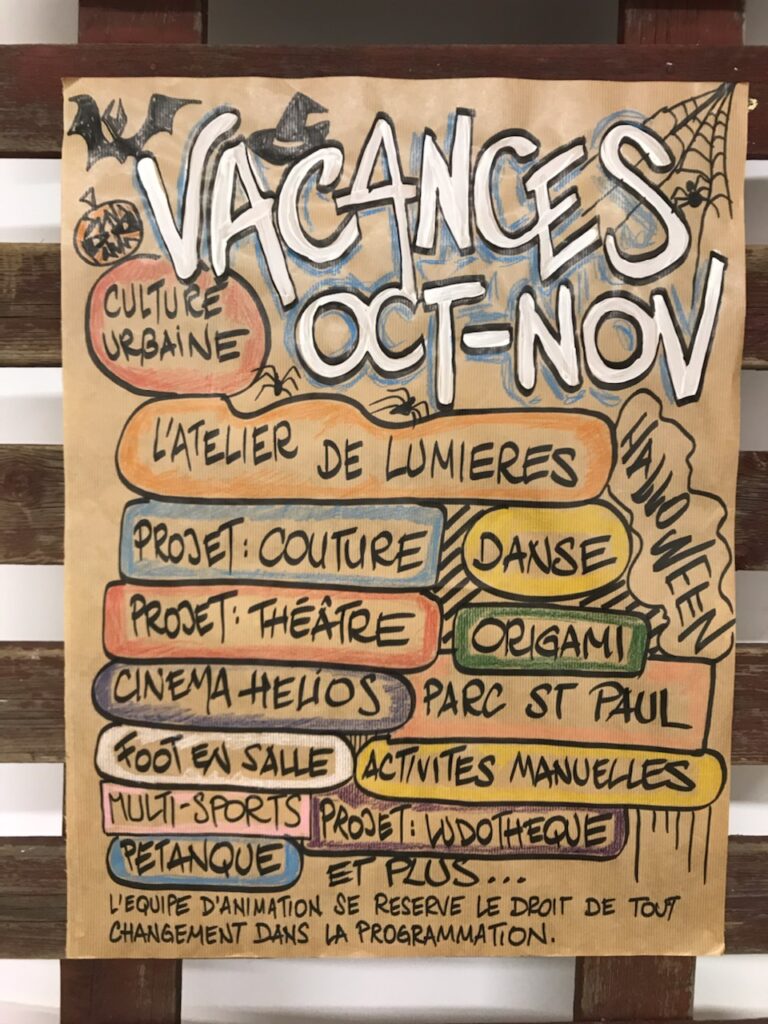 VACANCES
OCT-NOV
CULTURE
URBAINE
L'ATELIER DE LUMIERES
HALLOWEEN
PROJET: COUTURE
DANSE
PROJET: THÉÂTRE
ORIGAMI
CINEMA HELIOS
PARC ST PAUL
FOOT EN SALLE
ACTIVITES MANUELLES
MULTI-SPORTS
PROJET: LUDOTHEQUE
PETANQUE
ET PLUS...
L'EQUIPE D'ANIMATION SE RESERVE LE DROIT DE TOUT
CHANGEMENT DANS LA PROGRAMMATION.